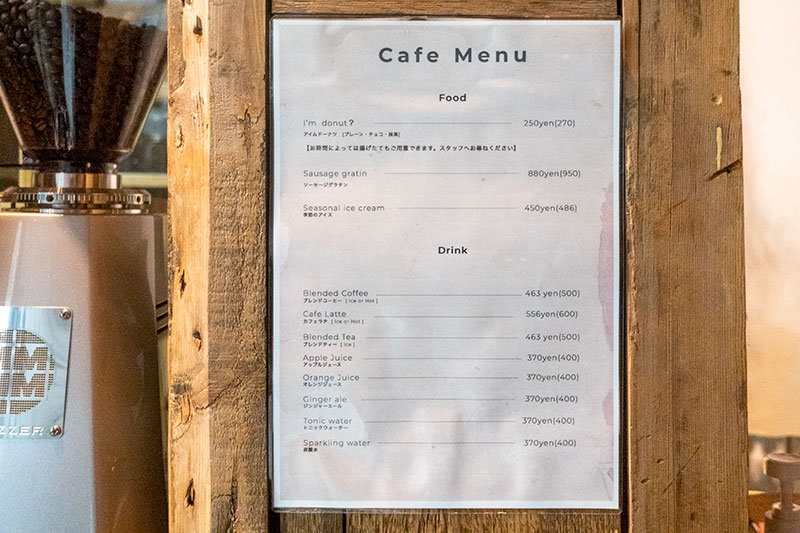 Cafe Menu
Food
I'm donut? 250yen(270)
アイムドーナツ [プレーン・チョコ・抹茶]
【お時間によっては揚げたてもご用意できます。スタッフへお尋ねください】
Sausage gratin 880yen(950)
ソーセージグラタン
Seasonal ice cream 450yen(486)
季節のアイス
Drink
Blended Coffee 463 yen(500)
ブレンドコーヒー [ Ice or Hot ]
Cafe Latte 556yen(600)
カフェラテ [ Ice or Hot ]
Blended Tea 463 yen(500)
ブレンドティー [ Ice ]
Apple Juice 370yen(400)
アップルジュース
Orange Juice 370yen(400)
オレンジジュース
Ginger ale 370yen(400)
ジンジャーエール
Tonic water 370yen(400)
トニックウォーター
Sparkling water 370yen(400)
炭酸水